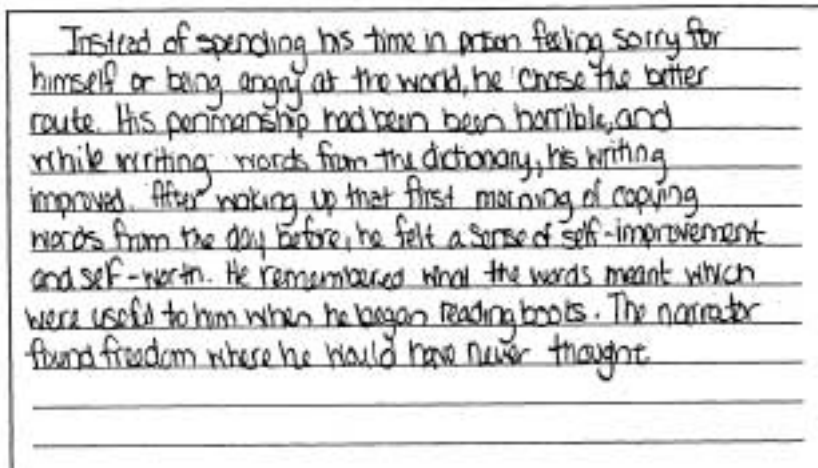 Instead of spending his time in prison feeling sorry for
himself or being angry at the world, he chose the better
route. His penmanship had been been horrible, and
while writing words from the dictionary, his writing
improved. After waking up that first morning of copying
words from the day before, he felt a sense of self-improvement
and self-worth. He remembered what the words meant which
were useful to him when he began reading books. The narrator
found freedom where he would have never thought